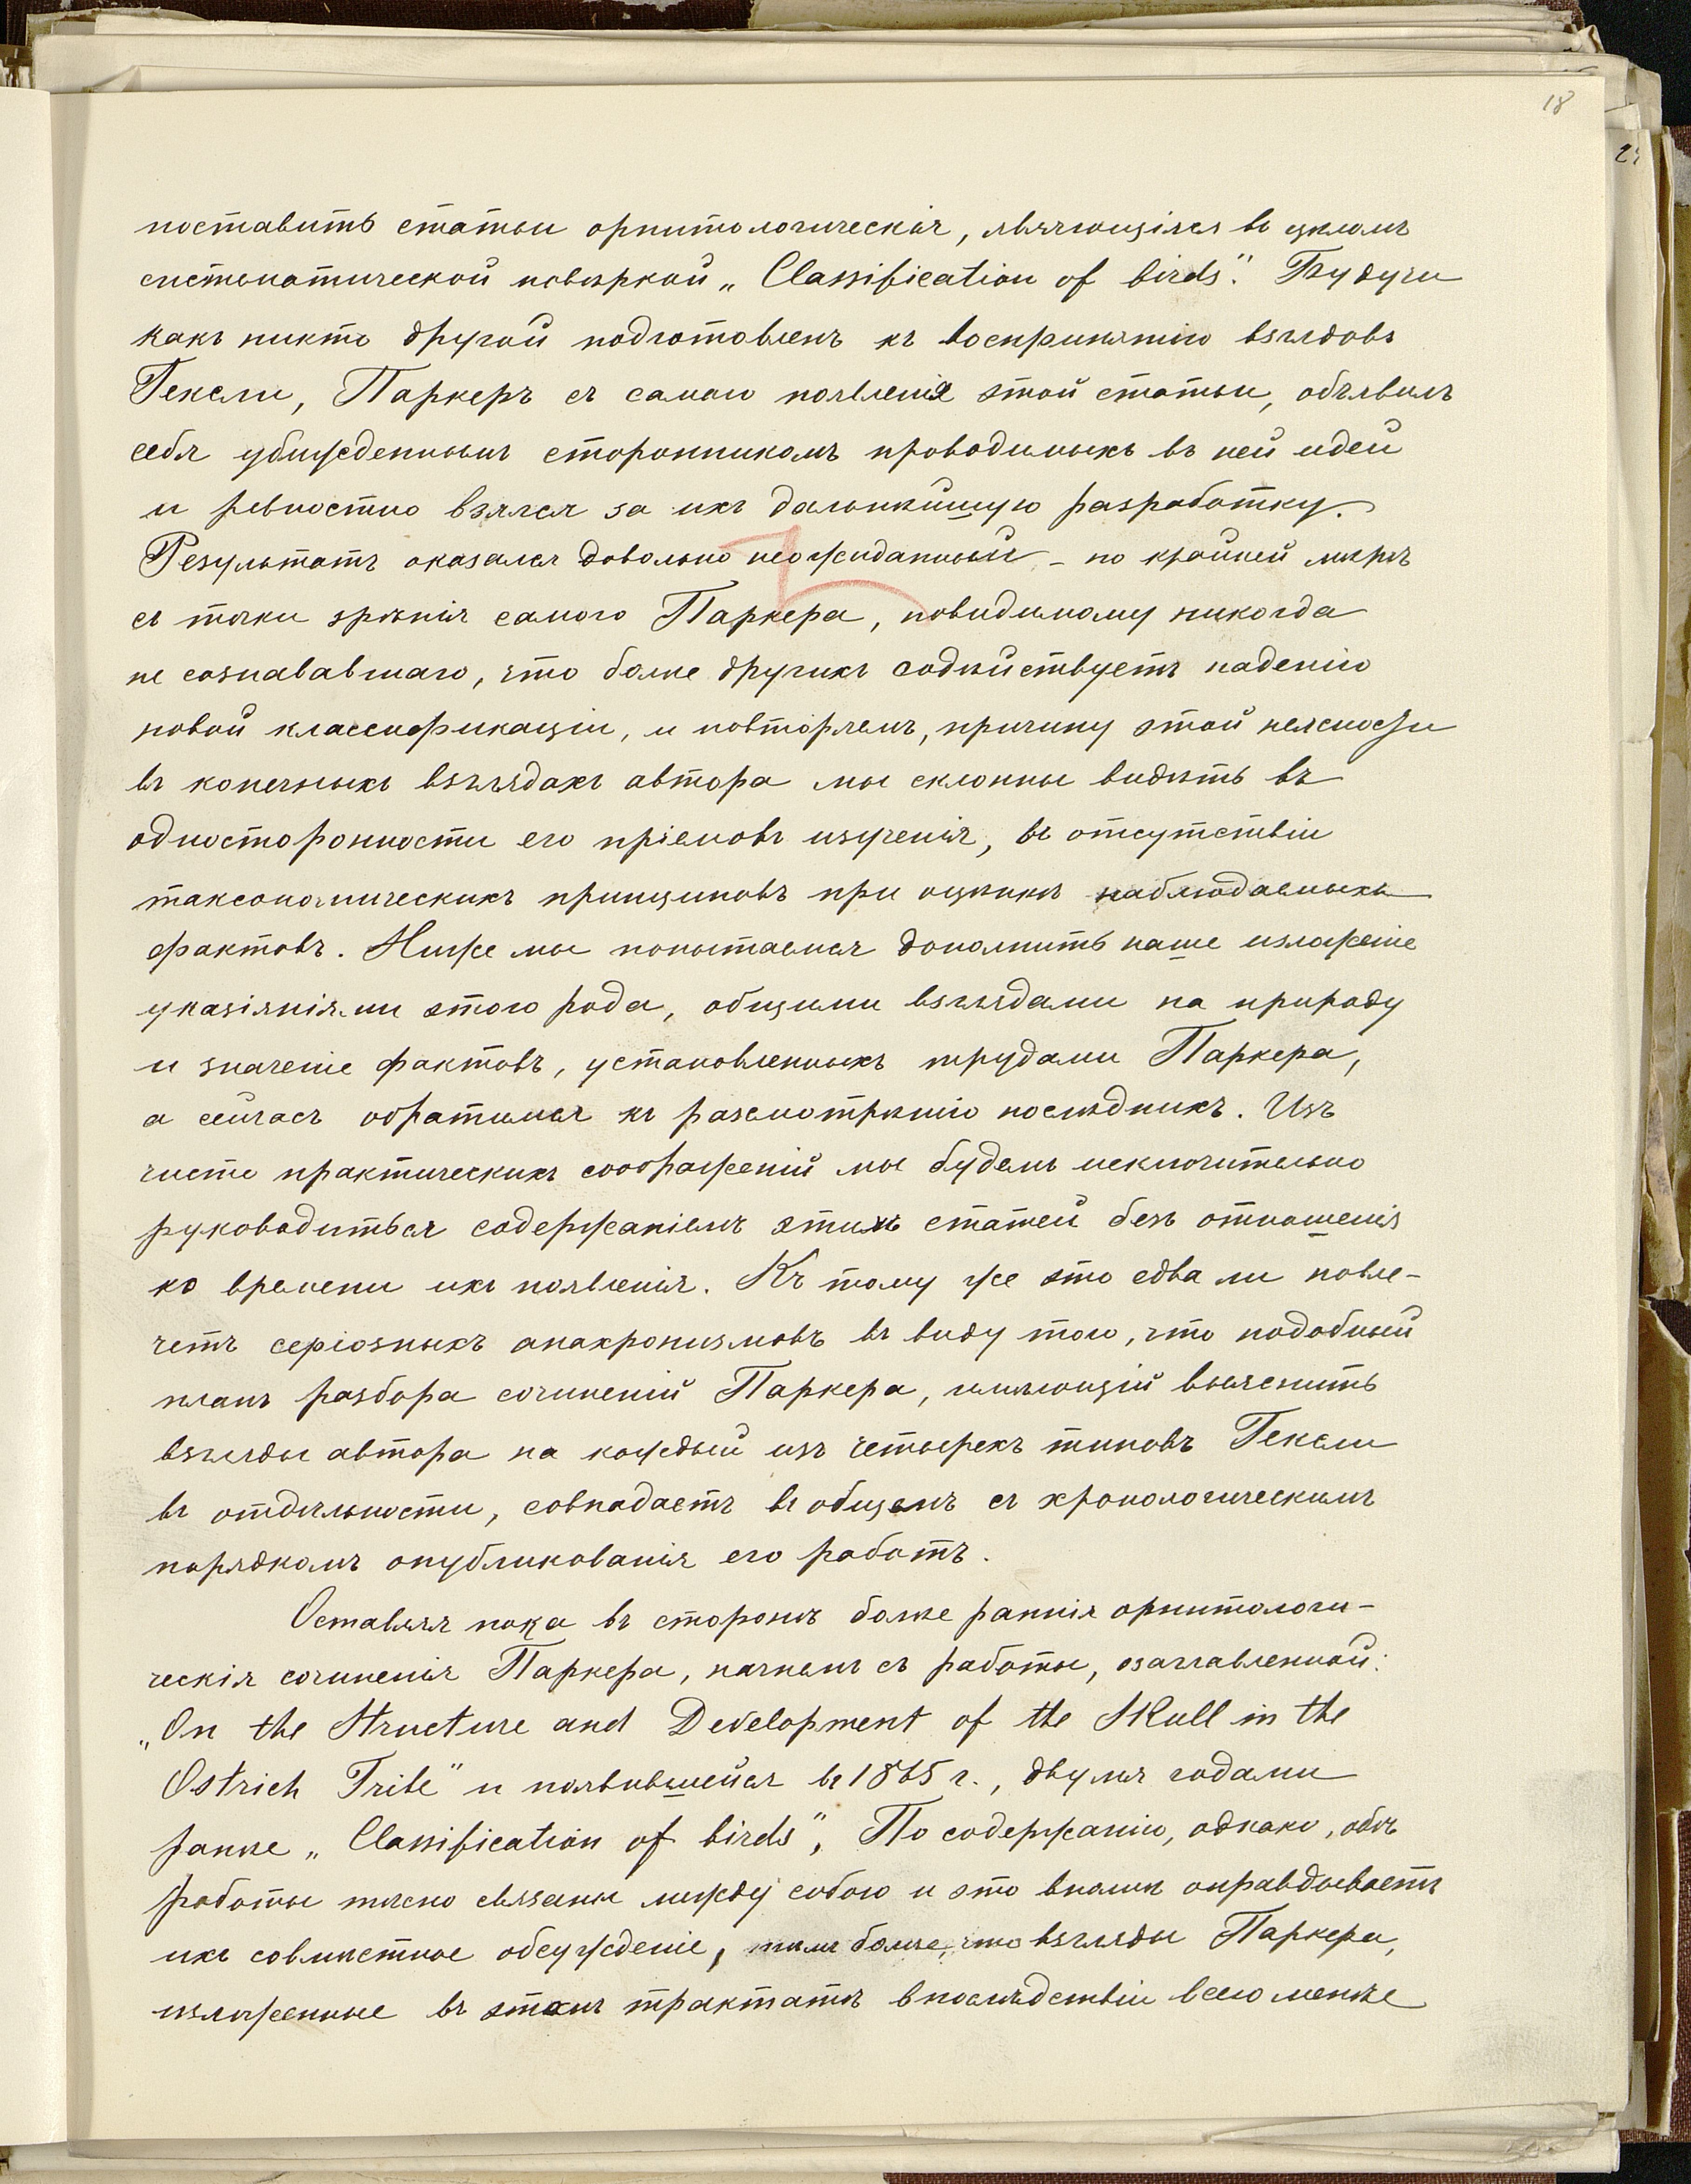 18
поставить статьи орнитологическія, являющіяся въ цѣломъ
систематической повѣркой „Classification of birds“. Будучи
какъ никто другой подготовленъ къ воспріятію взглядовъ
Гексли, Паркеръ съ самаго появленія этой статьи, объявилъ
себя убѣжденнымъ сторонникомъ проводимыхъ въ ней идей
и ревностно взялся за ихъ дальнѣйшую разработку.
Результатъ оказался довольно неожиданный – по крайней мѣрѣ
съ точки зрѣнія самого Паркера, повидимому никогда
не сознававшаго, что болѣе другихъ содѣйствуетъ паденію
новой классификаціи, и повторяемъ, причину этой неясности
въ конечныхъ взглядахъ автора мы склонны видѣть въ
односторонности его пріемовъ изученія, въ отсутствіи
таксономическихъ принциповъ при оцѣнкѣ наблюдаемыхъ
фактовъ. Ниже мы попытаемся дополнить наше изложеніе
указаніями этого рода, общими взглядами на природу
и значеніе фактовъ, установленныхъ трудами Паркера,
а сейчасъ обратимся къ разсмотрѣнію послѣднихъ. Изъ
чисто практическихъ соображеній мы будемъ исключительно
руководиться содержаніемъ этихъ статей безъ отношенія
ко времени ихъ появленія. Къ тому же это едва ли повле-
четъ серіозныхъ анахронизмовъ въ виду того, что подобный
планъ разбора сочиненій Паркера, имѣющій выяснить
взгляды автора на каждый изъ четырехъ типовъ Гексли
въ отдѣльности, совпадаетъ въ общемъ съ хронологическимъ
порядкомъ опубликованія его работъ.
Оставляя пока въ сторонѣ болѣе раннія орнитологи-
ческія сочиненія Паркера, начнемъ съ работы, озаглавленной:
„On the Structure and Development of the Skull in the
Ostrich Tribe“ и появившейся въ 1865 г., двумя годами
ранѣе „Classification of birds“, По содержанію, однако, обѣ
работы тѣсно связаны между собою и это вполнѣ оправдываетъ
ихъ совмѣстное обсужденіе, тѣмъ болѣе, что взгляды Паркера,
изложенные въ этомъ трактатѣ впослѣдствіи всего менѣе